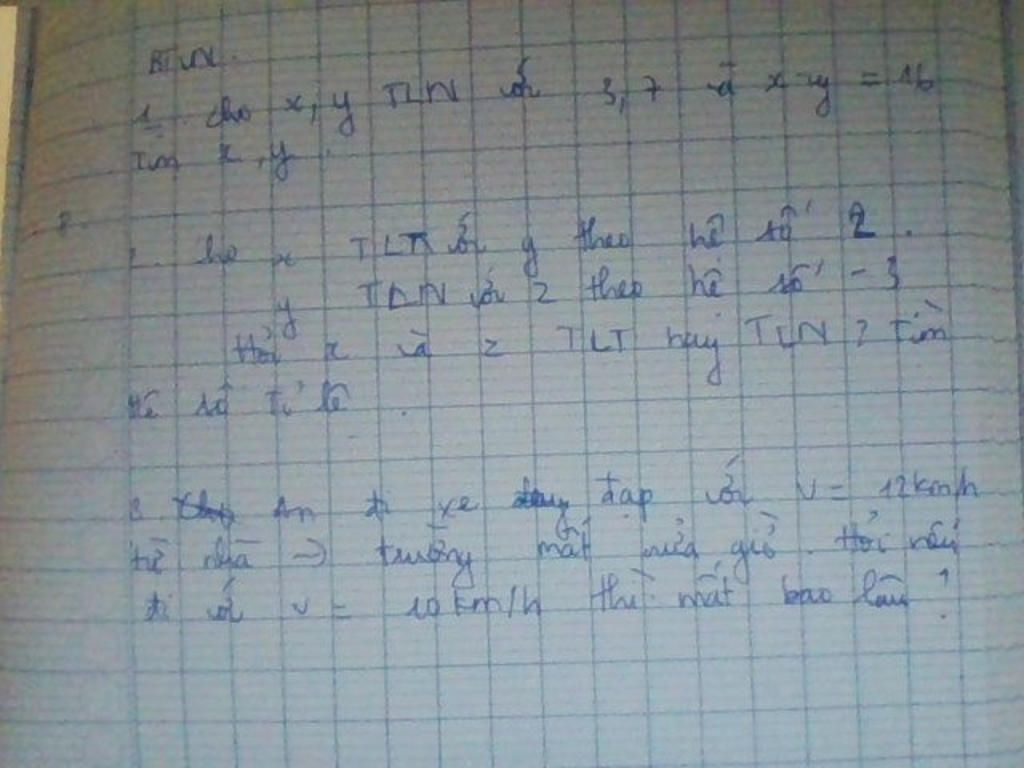 BTVN.
1. cho x, y TLN với 3, 7 và x-y = 16
Tìm x, y.
2. Cho x TLT với y theo hệ số 2.
y TLN với z theo hệ số -3
Hỏi x và z TLT hay TLN ? Tìm
Hệ số tỉ lệ.
3 An đi xe đạp với v = 12km/h
từ nhà → trường mất nửa giờ. Hỏi nếu
đi với v = 10km/h thì mất bao lâu ?